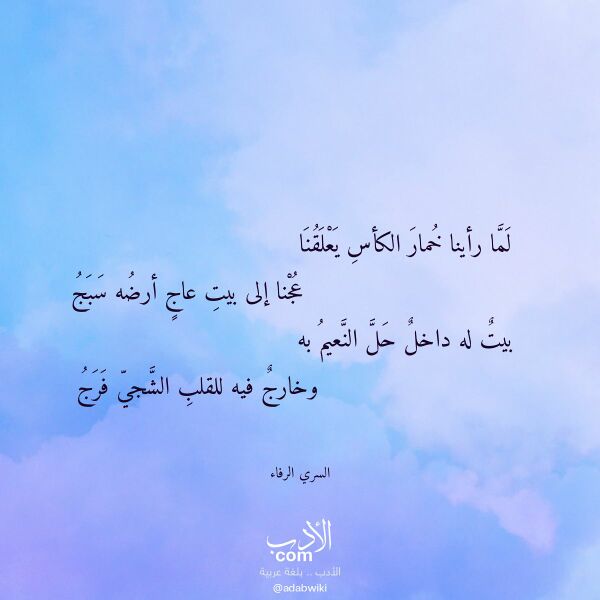 لَمَّا رأينا خُمارَ الكأسِ يَعْلَقُنَا
عُجْنا إلى بيتِ عاجٍ أرضُه سَبَجُ
بيتٌ له داخلٌ حَلَّ النَّعيمُ به
وخارجٌ فيه للقلبِ الشَّجيّ فَرَجُ
السري الرفاء
الأدب
com
الأدب .. بلغة عربية
@adabwiki